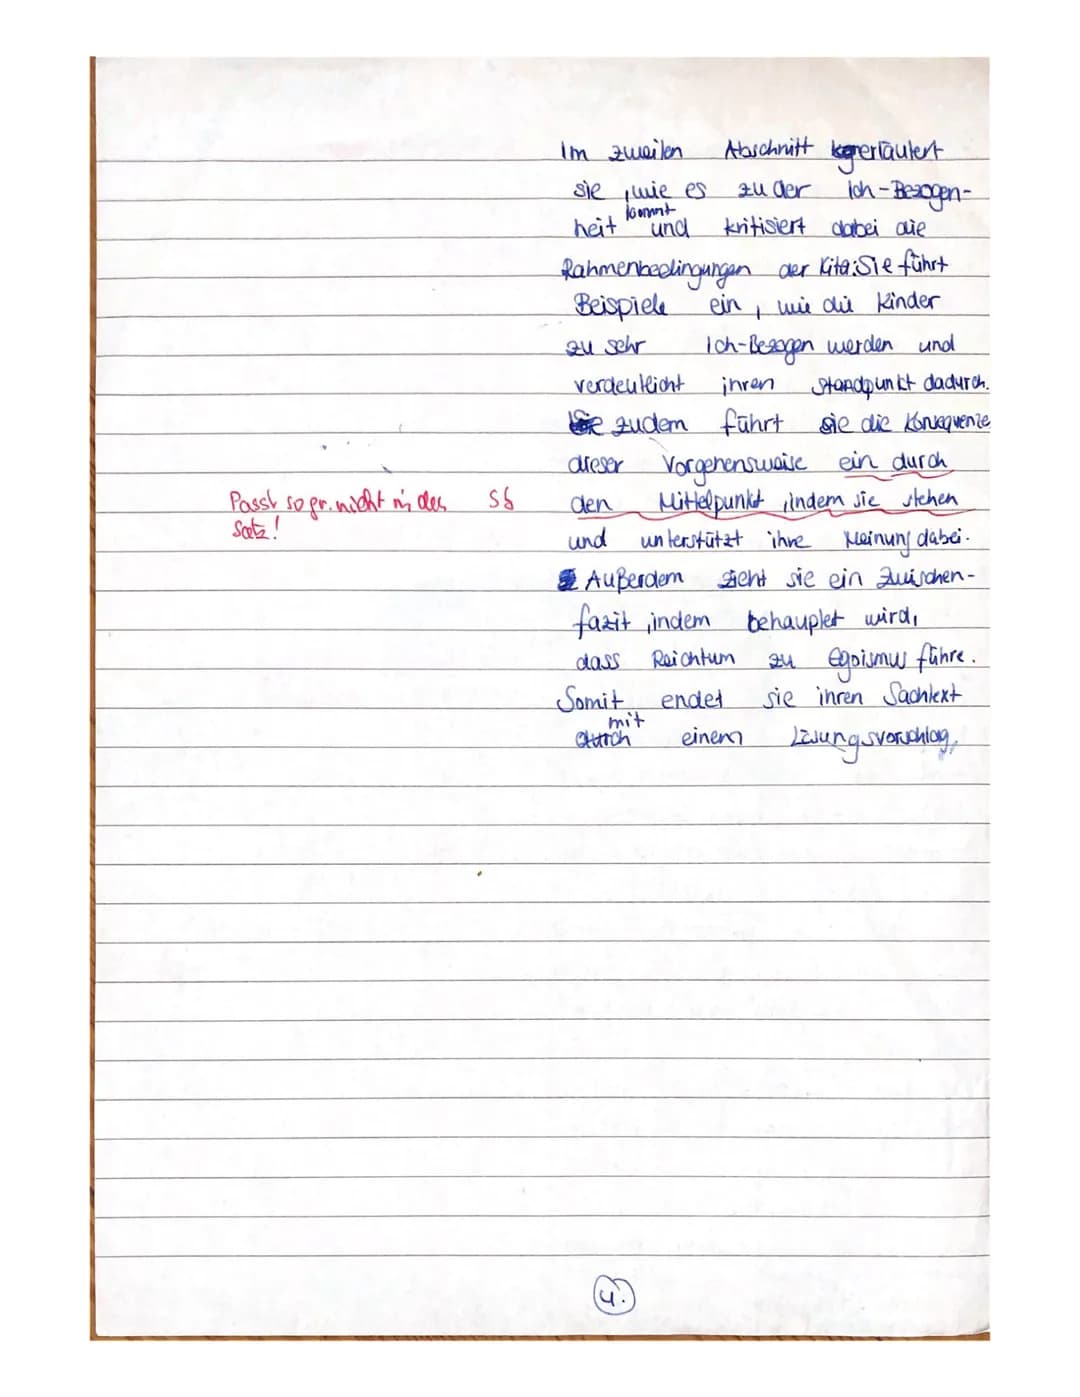 Im zweiten Abschnitt erläutert
sie, wie es zu der Ich-Bezogen-
heit kommt und kritisiert dabei die
Rahmenbedingungen der Kita. Sie führt
Beispiele ein, wie die Kinder
zu sehr Ich-Bezogen werden und
verdeutlicht ihren Standpunkt dadurch.
zudem führt sie die Konsequenze
dieser Vorgehensweise ein durch
Passt so gr. nicht in den Sb den Mittelpunkt, indem sie stehen
Satz! und unterstützt ihre Meinung dabei.
Außerdem zieht sie ein Zwischen-
fazit, indem behauptet wird,
dass Reichtum zu Egoismus führe.
Somit endet sie ihren Sachtext
mit
durch einem Lösungsvorschlag.
4.